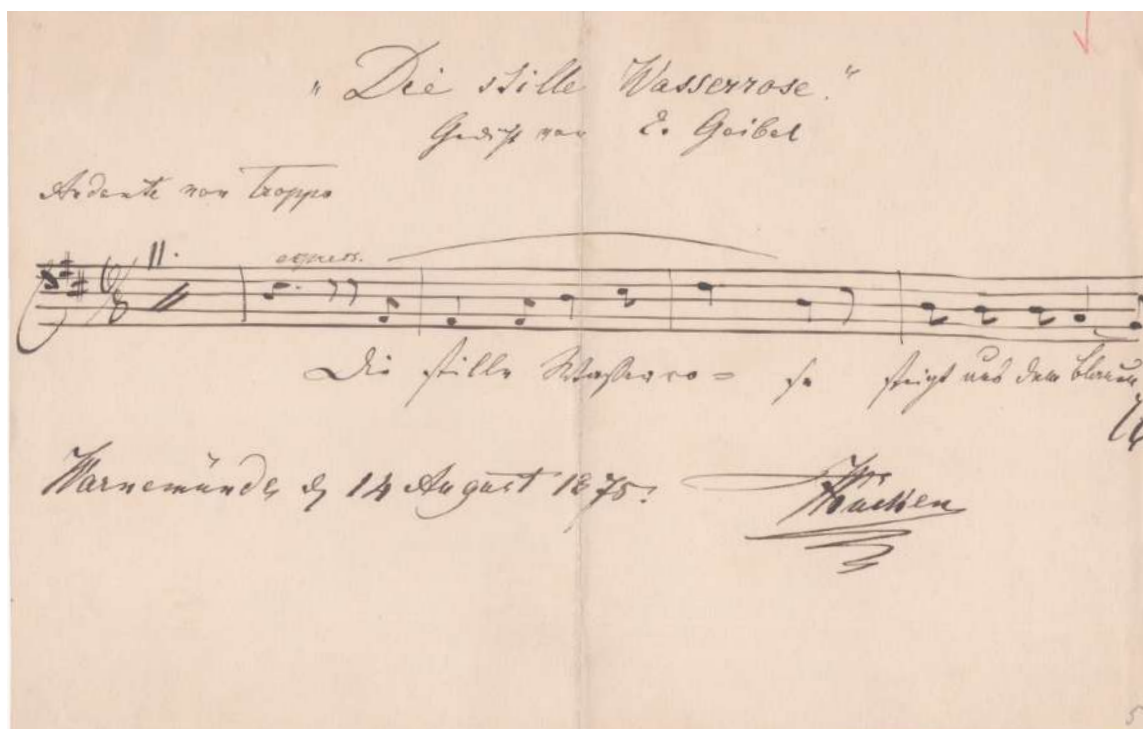 „Die stille Wasserrose."
Gedicht von E. Geibel
Andante non troppo
II.
espress.
Die stille Wasserro = se steigt aus dem blauen
Warnemünde, d 14 August 1875.
Kücken
5